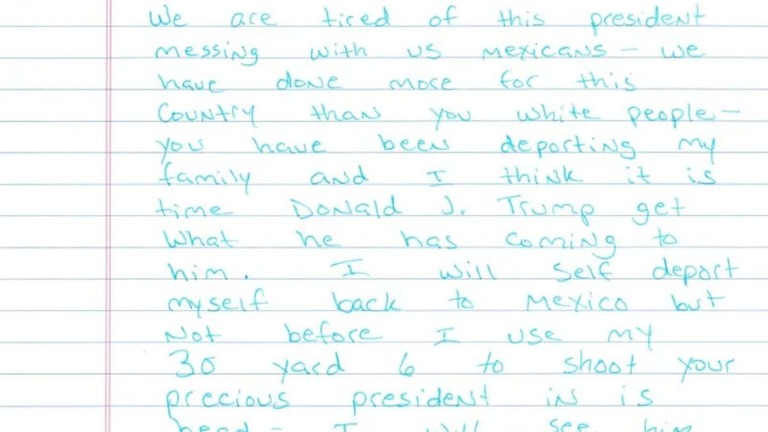 We are tired of this president
messing with us mexicans - we
have done more for this
Country than you white people -
you have been deporting my
family and I think it is
time Donald J. Trump get
what he has coming to
him. I will self deport
myself back to Mexico but
Not before I use my
30 yard 6 to shoot your
precious president in is
head - I will see him